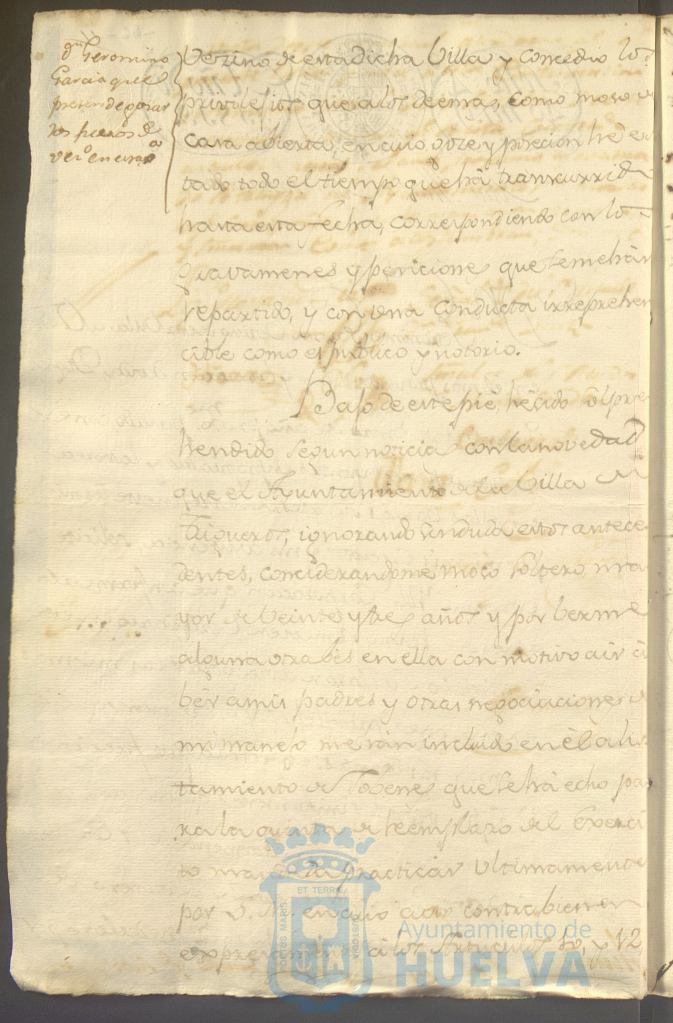 Dn Geronimo
Garcia que
pretende gozar
los fueros de
vezo en esta
Vezino de esta dicha Villa y concedio los
privilejios que a los demas, como moso de
casa abierta, en cuio goze y posecion he es
tado todo el tiempo que há transcurrido
hasta esta fecha, correspondiendo con los
Gravamenes y pericione que se me hán
repartido, y con una conducta irreprehen
cible como es publico y notorio.
Bajo de este pié, he sido sorpre
hendido segun noticia con la novedad
que el Ayuntamiento de la Villa de
Trigueros, ignorando sin duda estos antece
dentes, conciderandome moso soltero ma
yor de Veinte y tres años y por berme
alguna otra bes en ella con motivo a ir á
bér a mis padres y otras negociaciones de
mi manejo me hán incluido en él alis
tamiento de Jobenes que se há echo pa
ra la quinta de reemplazo del Exerci
to mandada practicár Ultimamente
por S. M. en cuio acto contrabienen
expresamente á los Artuculos 10, y 12
ET TERRA
PORTUS MARIS
CUSTODIA
Ayuntamiento de
HUELVA